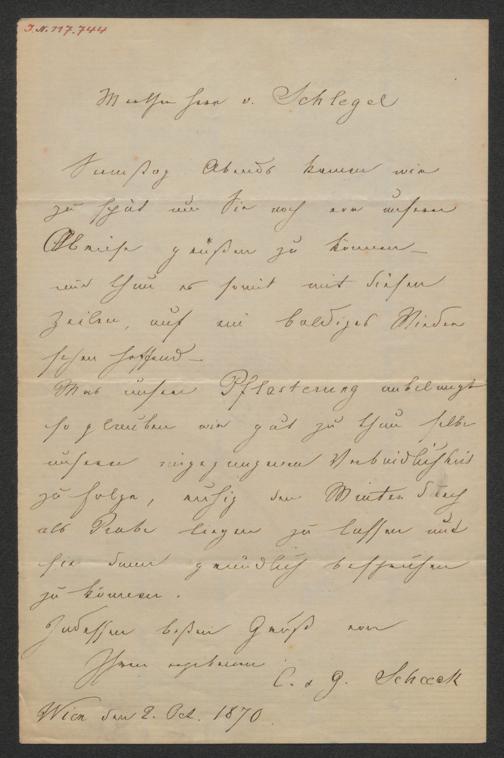 I.N. 117.744
Werther Herr v. Schlegel
Samstag Abends kamen wir
zu spät um Sie noch vor unserer
Abreise grüßen zu können –
wir thun es somit mit diesen
Zeilen, auf ein baldiges Wieder
sehen hoffend –
Was unsere Pflasterung anbelangt
so glauben wir gut zu thun selbe
unserer eingegangenen Verbindlichkeit
zu folge, ruhig den Winter durch
als Probe liegen zu lassen und
sie dann gründlich besprechen
zu können.
Indessen besten Gruß von
Ihren ergebenen
C. & G.
Wien den 2. Oct. 1870.